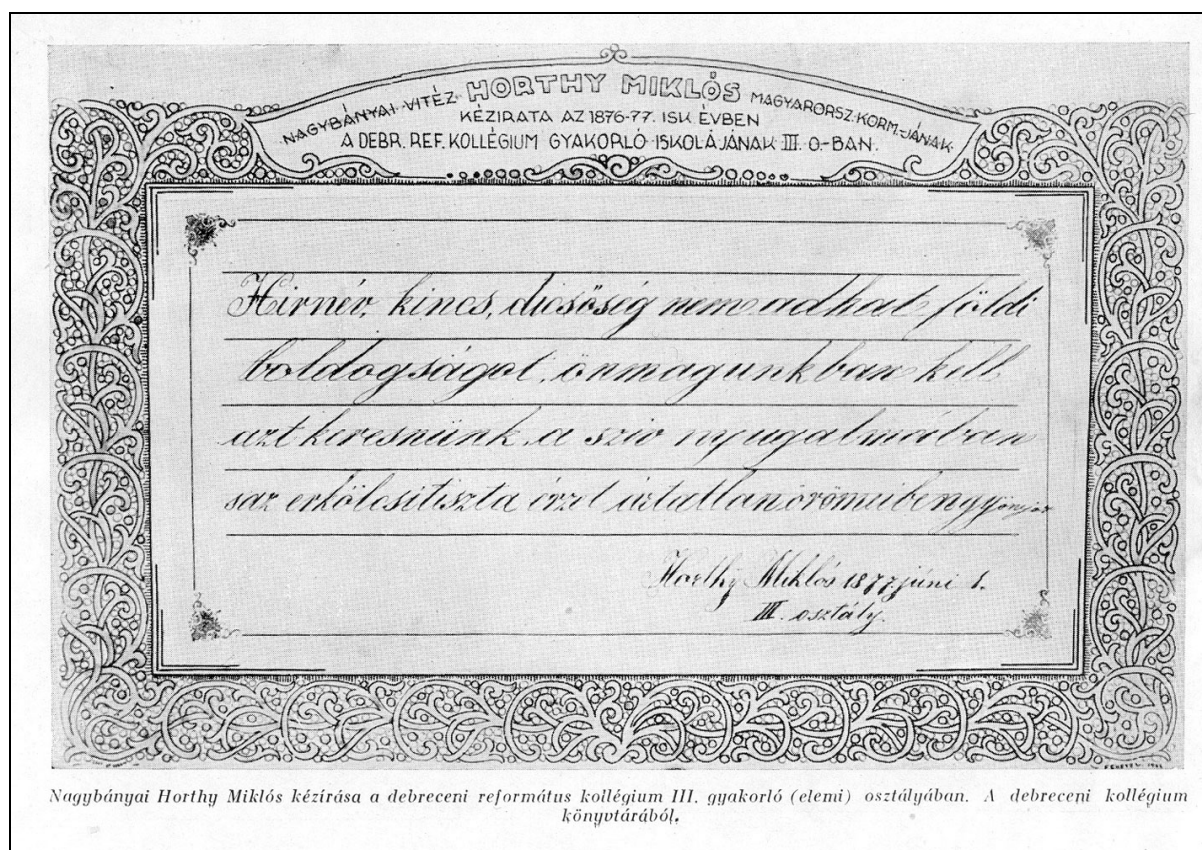 NAGYBÁNYAI VITÉZ HORTHY MIKLÓS MAGYARORSZ. KORM.-JÁNAK
KÉZIRATA AZ 1876-77. ISK. ÉVBEN
A DEBR. REF. KOLLÉGIUM GYAKORLÓ ISKOLÁJÁNAK III. O.-BAN.
Hirnév, kincs, dicsőség nem adhat földi
boldogságot, önmagunkban kell
azt keresnünk, a sziv nyugalmában
s az erkölcsi tiszta érzet ártatlan örömeiben
Horthy Miklós 1877 júni 1.
III. osztály.
Nagybányai Horthy Miklós kézírása a debreceni református kollégium III. gyakorló (elemi) osztályában. A debreceni kollégium
könyvtárából.